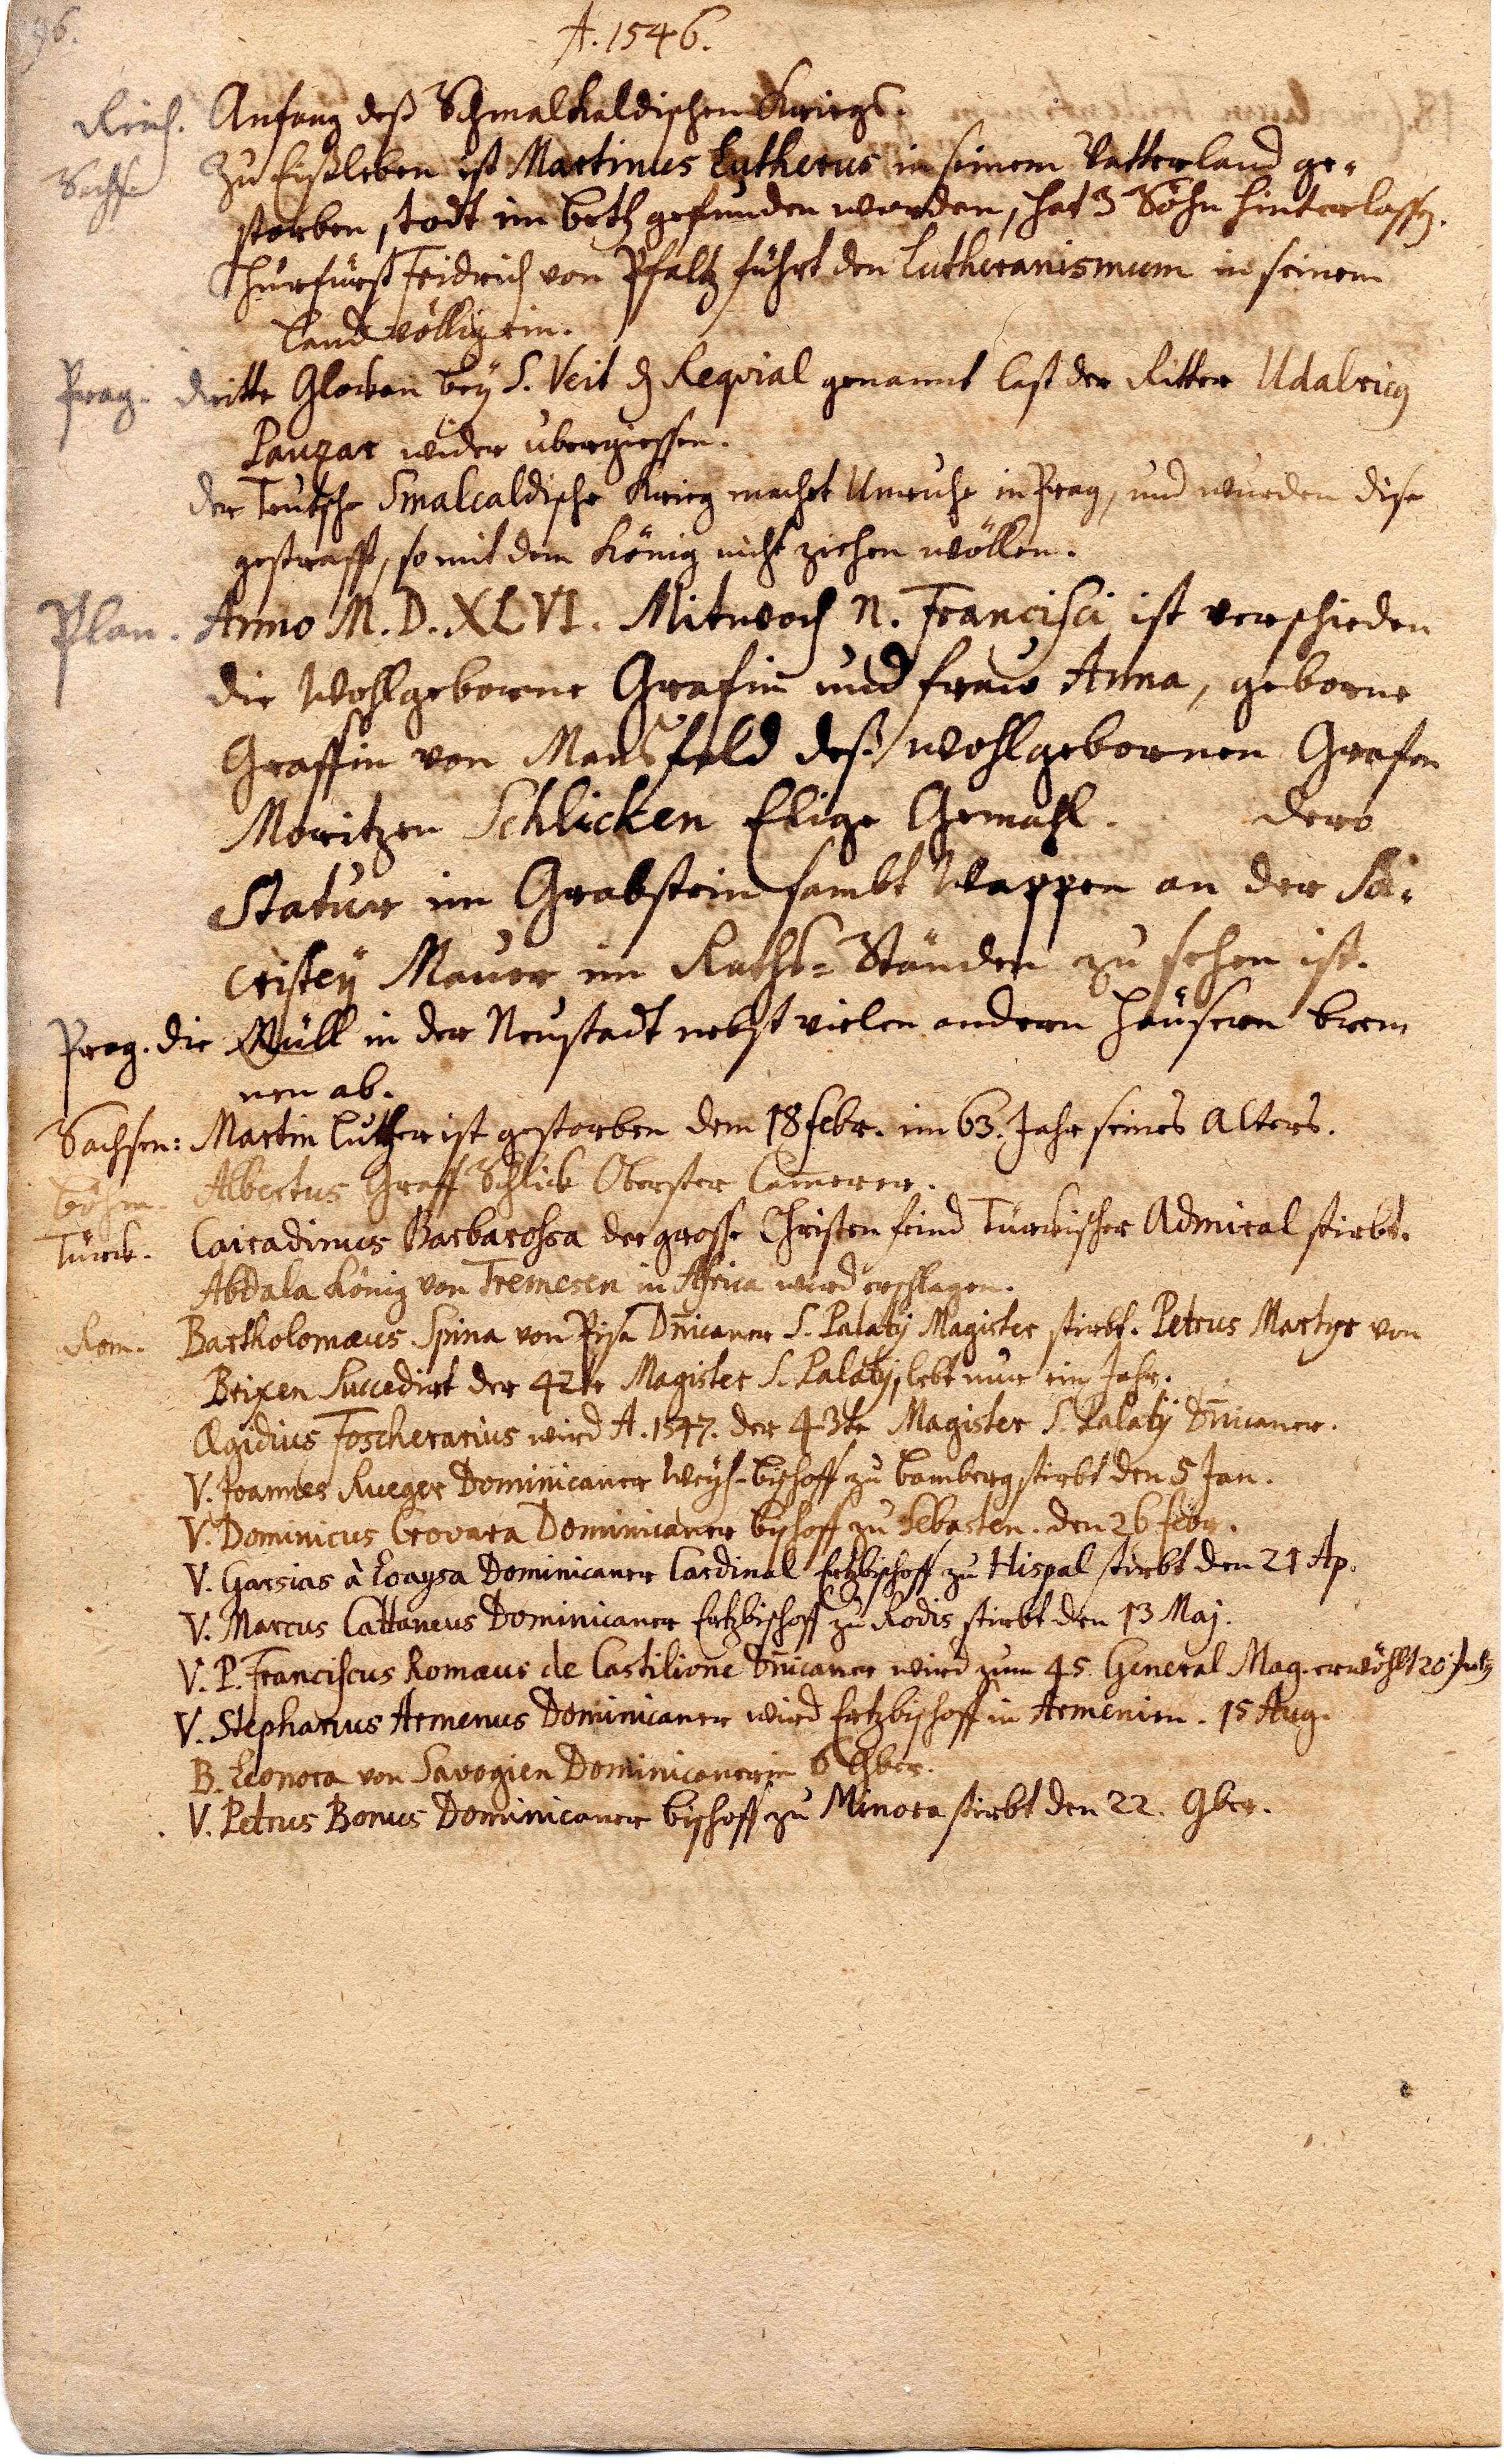 96.
A. 1546.
Reich. Anfang deß Schmalkaldischen Kriegs.
Sachse Zu Eißleben ist Martinus Lutherus in seinem Vatterland ge-
storben, todt im beth gefunden worden, hat 3 Söhn hinterlassen.
Churfürst Fridrich von Pfaltz führt den Lutheranismum in seinem
Land völlig ein.
Prag. dritte Glocken bey S. Veit Requial genannt last der Ritter Udalricus
wider ubergiessen.
der Teutsche Smalcaldische Krieg machet Unruhe in Prag, und wurden dise
gestrafft, so mit dem König nicht ziehen wöllen.
Plan. Anno M.D.XLVI. Mitwoch N. Francisci ist verschieden
die Wohlgeborne Grafin und fraw Anna, geborne
Graffin von Mansfeld deß wohlgebornen Grafen
Moritzen Schlicken Elige Gemahl. dero
Statur im Grabstein sambt Wappen an der Sa-
cristey Mauer im Raths-Ständen zu sehen ist.
Prag. die Müll in der Neustadt nebst vielen andern Häusern bren
nen ab.
Sachsen: Martin Luther ist gestorben dem 18 febr. im 63. Jahr seines Alters.
Böhm. Albertus Graff Schlick Oberster Camerer.
Türck. Cairadinus Barbarossa der grosse Christen feind Türckischer Admiral stirbt.
Abdala König von Tremesen in Africa wird erschlagen.
Rom. Bartholomæus Spina von Pisa Dnicaner S. Palatij Magister stirbt. Petrus Martyr von
Brixen Succedirt der 42te Magister S. Palatij, lebt nur ein Jahr.
Ægidius Foscherarius wird A. 1547. der 43te Magister S. Palatij Dnicaner.
V. Joannes Rueger Dominicaner Weyh-bischoff zu bamberg stirbt den 5 Jan.
V. Dominicus Crovara Dominicaner bischoff zu Sebasten. den 26 febr.
V. Garsias à Loaysa Dominicaner Cardinal Ertzbischoff zu Hispal stirbt den 21 Ap.
V. Marcus Cattaneus Dominicaner Ertzbischoff zu Rodis stirbt den 13 Maj.
V. P. Franciscus Romæus de Castilione Dnicaner wird zum 45. General Mag. erwöhlt 20 July
V. Stephanus Armenus Dominicaner wird Ertzbischoff in Armenien. 15 Aug.
B. Leonora von Savogien Dominicanerin
V. Petrus Bonus Dominicaner bischoff zu Minora stirbt den 22. 9ber.